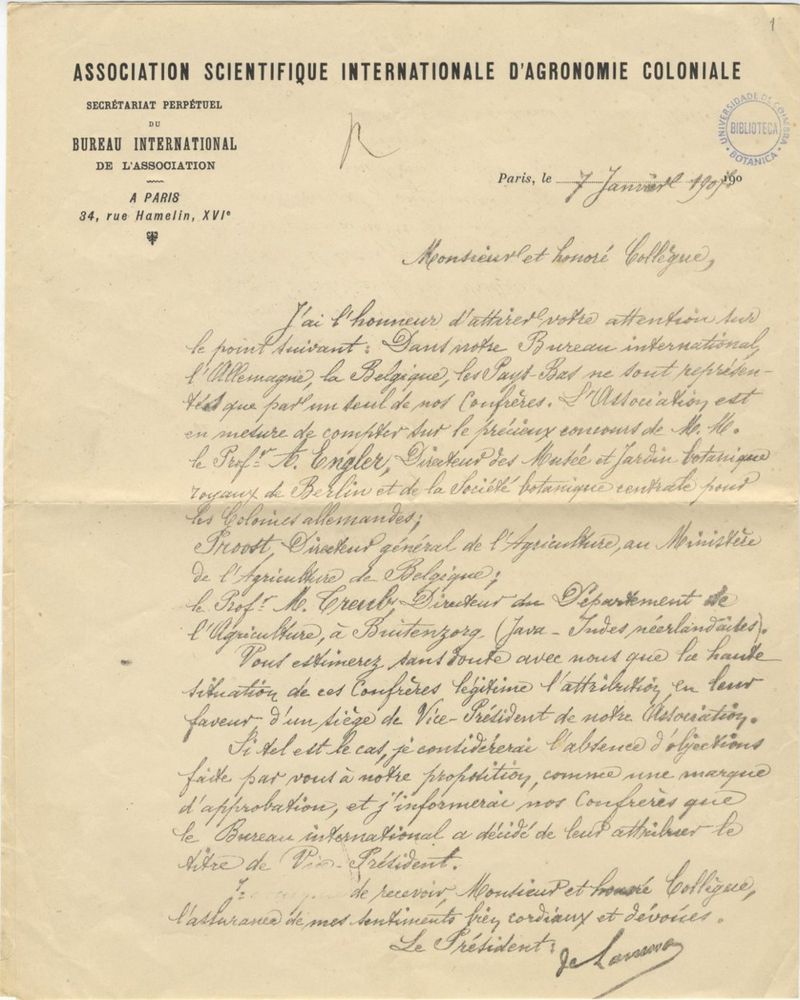 1
ASSOCIATION SCIENTIFIQUE INTERNATIONALE D'AGRONOMIE COLONIALE
SECRÉTARIAT PERPÉTUEL
DU
BUREAU INTERNATIONAL
DE L'ASSOCIATION
A PARIS
34, rue Hamelin, XVIe
UNIVERSIDADE DE COIMBRA
BIBLIOTECA
BOTANICA
R
Paris, le 7 Janvier 190
Monsieur et honoré Collègue,
J'ai l'honneur d'attirer votre attention sur
le point suivant : Dans notre Bureau international,
l'Allemagne, la Belgique, les Pays-Bas ne sont représen-
tés que par un seul de nos Confrères. L'Association est
en mesure de compter sur le précieux concours de M. M.
le Profr A. Engler, Directeur des Musée et Jardin botanique
royaux de Berlin et de la Société botanique centrale pour
les Colonies allemandes ;
Proost, Directeur général de l'Agriculture, au Ministère
de l'Agriculture de Belgique ;
le Profr M. Treub, Directeur du Département de
l'Agriculture, à Buitenzorg (Java - Indes néerlandaises).
Vous estimerez sans doute avec nous que la haute
situation de ces Confrères légitime l'attribution, en leur
faveur d'un siège de Vice-Président de notre Association.
Si tel est le cas, je considérerai l'absence d'objections
faite par vous à notre proposition, comme une marque
d'approbation, et j'informerai nos Confrères que
le Bureau international a décidé de leur attribuer le
titre de Vice-Président.
de recevoir Monsieur et honoré Collègue,
l'assurance de mes sentiments bien cordiaux et dévoués.
Le Président :